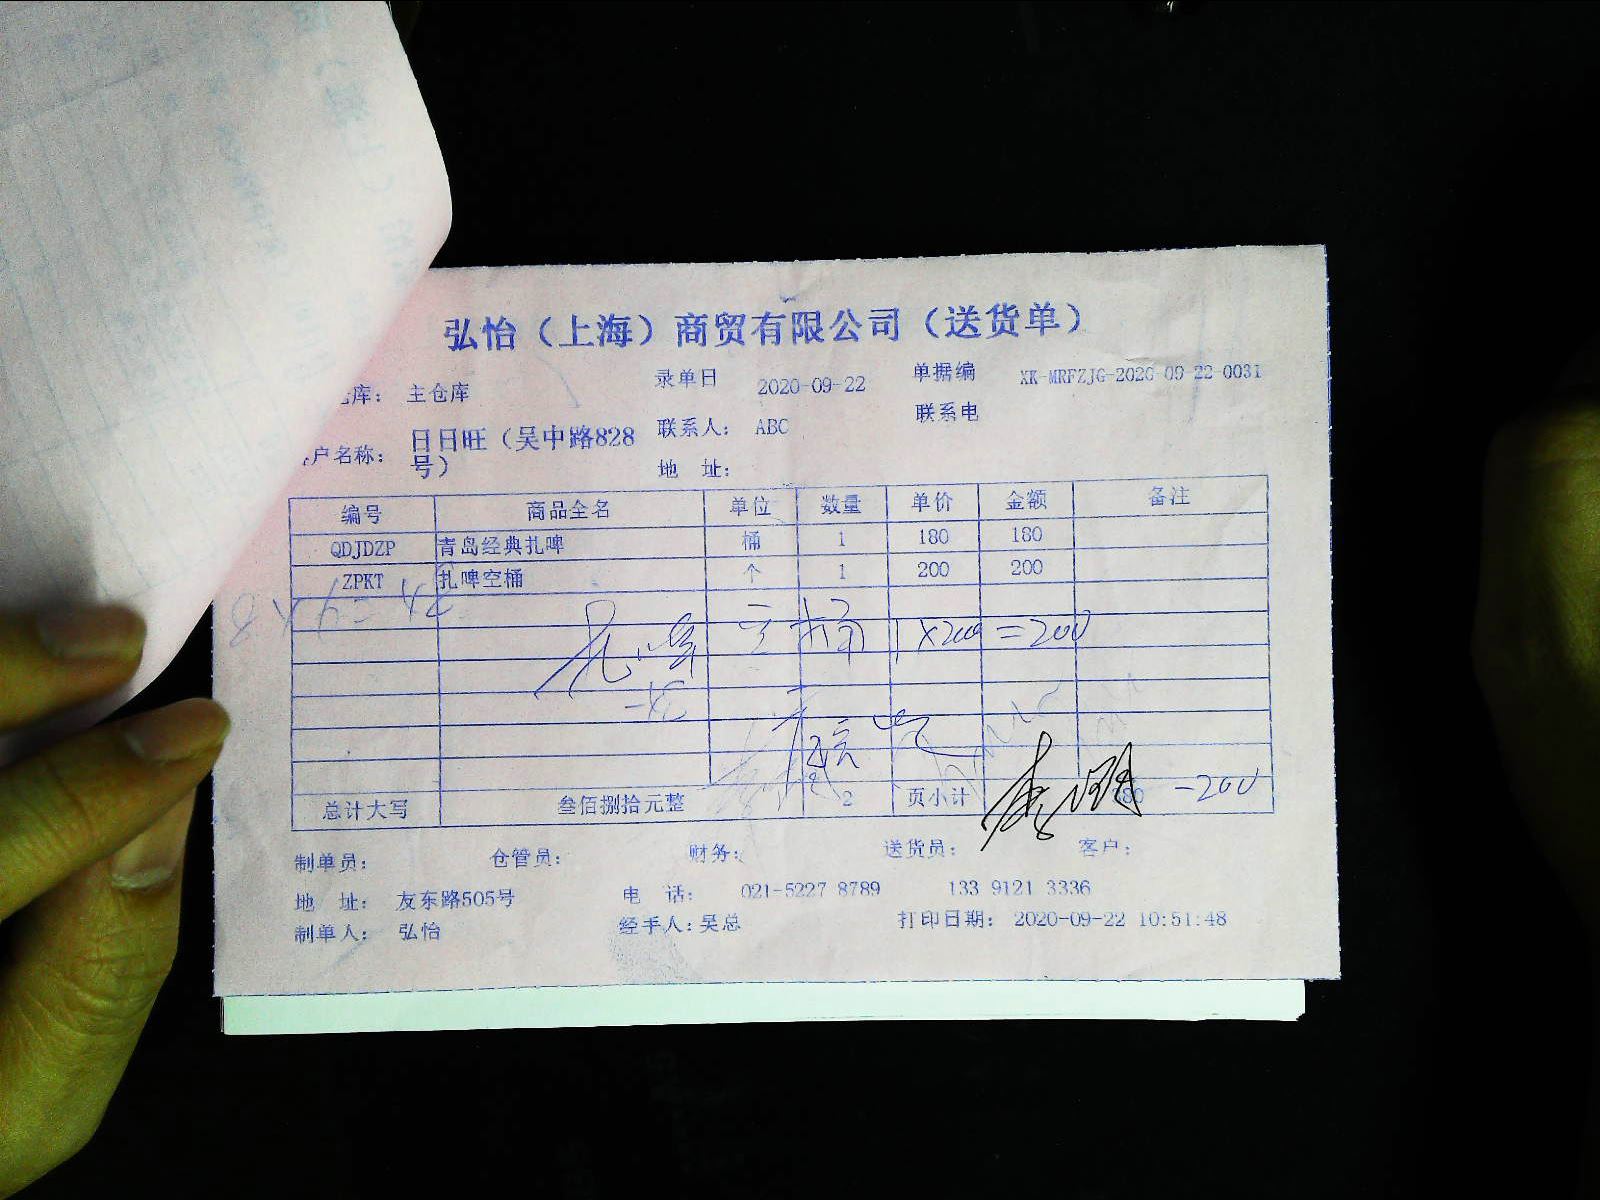 弘怡（上海）商贸有限公司（送货单）
库： 主仓库 录单日 2020-09-22 单据编 XK-MRFZJG-2020-09-22-0031
户名称： 日日旺（吴中路828号） 联系人： ABC 联系电
地 址：
编号 商品全名 单位 数量 单价 金额 备注
QDJDZP 青岛经典扎啤 桶 1 180 180
ZPKT 扎啤空桶 个 1 200 200
扎啤 空桶 1×200=200
总计大写 叁佰捌拾元整 2 页小计 380 -200
制单员： 仓管员： 财务： 送货员： 客户：
地 址： 友东路505号 电 话： 021-5227 8789 133 9121 3336
制单人： 弘怡 经手人：吴总 打印日期： 2020-09-22 10:51:48